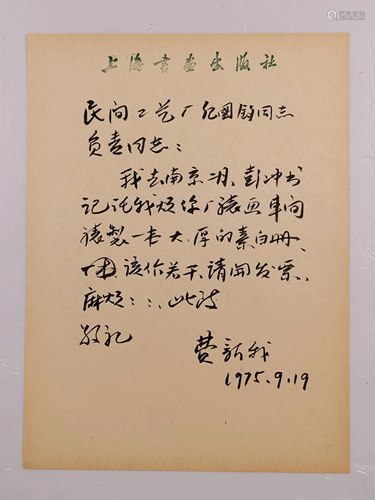 上海书画出版社
民间工艺厂纪国钧同志
负责同志：
我去南京一月，彭冲书
记托我烦你厂裱画车间
裱製一本大、厚的素白册
该价若干，请开发票、
麻烦：：，此致
敬礼
费新我
1975.9.19